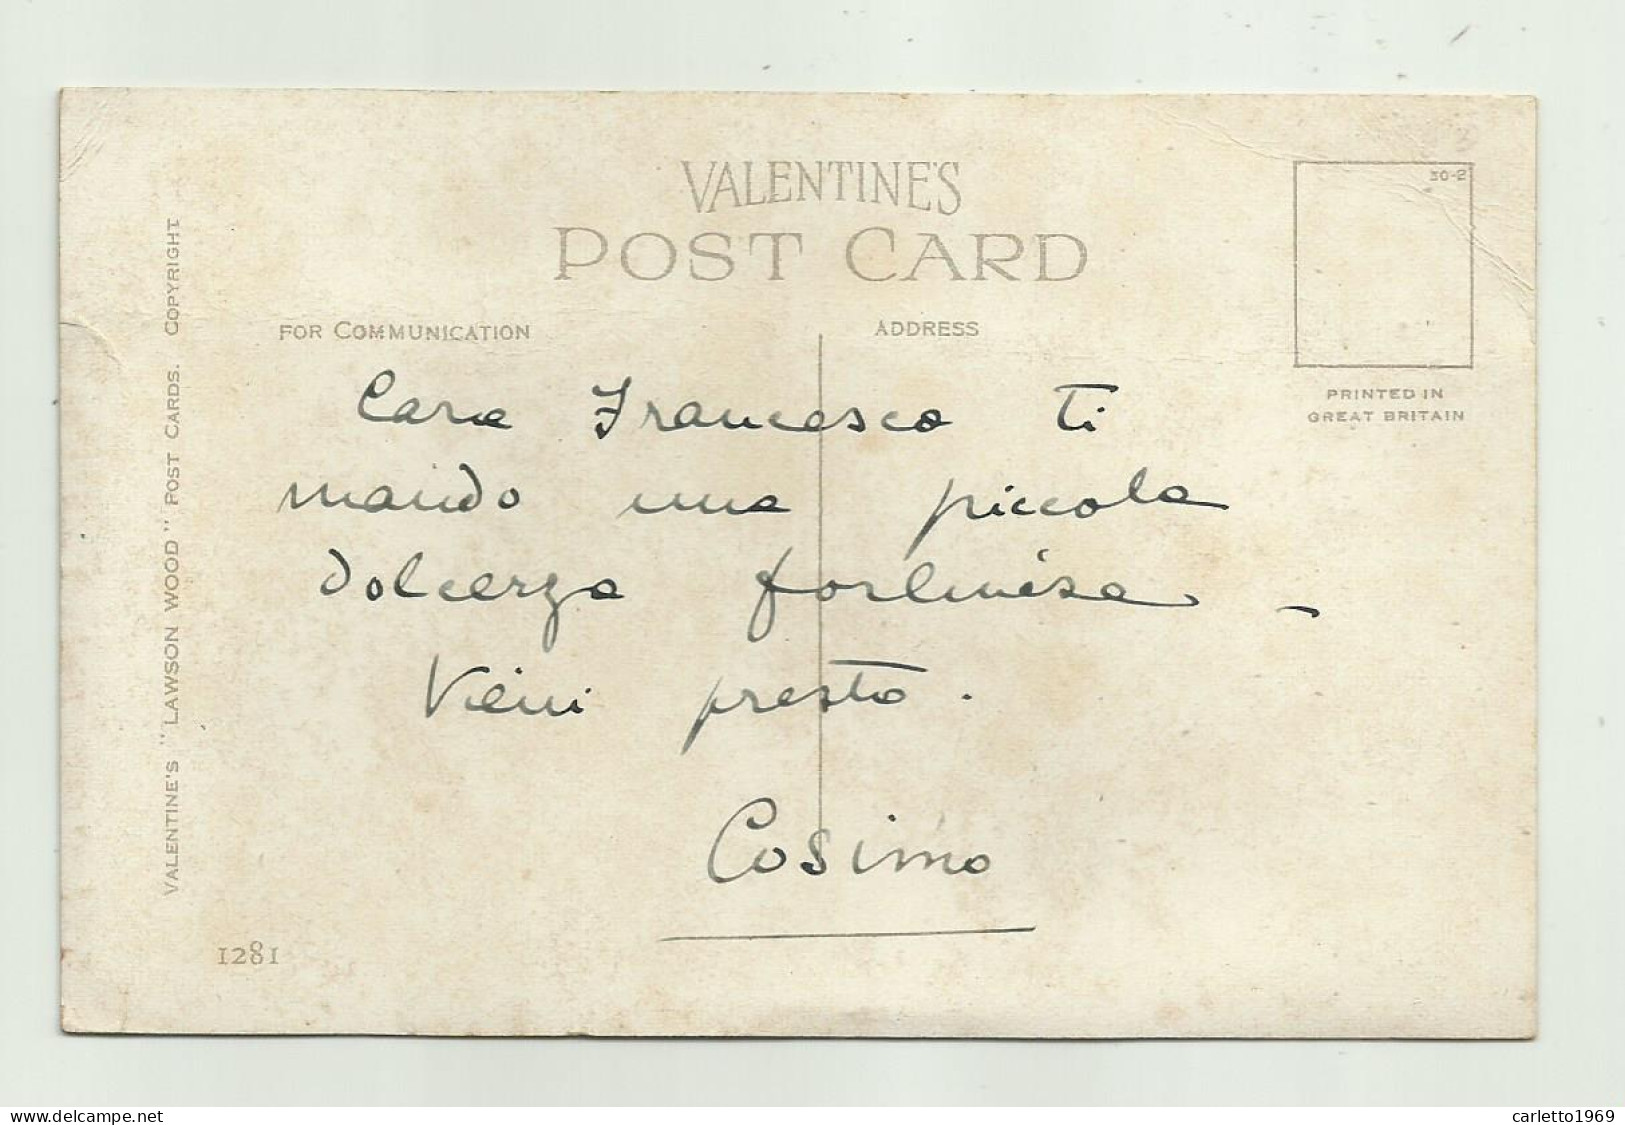 VALENTINE'S
POST CARD
FOR COMMUNICATION
ADDRESS
30-2
PRINTED IN
GREAT BRITAIN
VALENTINE'S "LAWSON WOOD" POST CARDS. COPYRIGHT
Cara Francesca ti
mando una piccola
dolcezza -
Vieni presto.
Cosimo
1281
www.delcampe.net
carletto1969